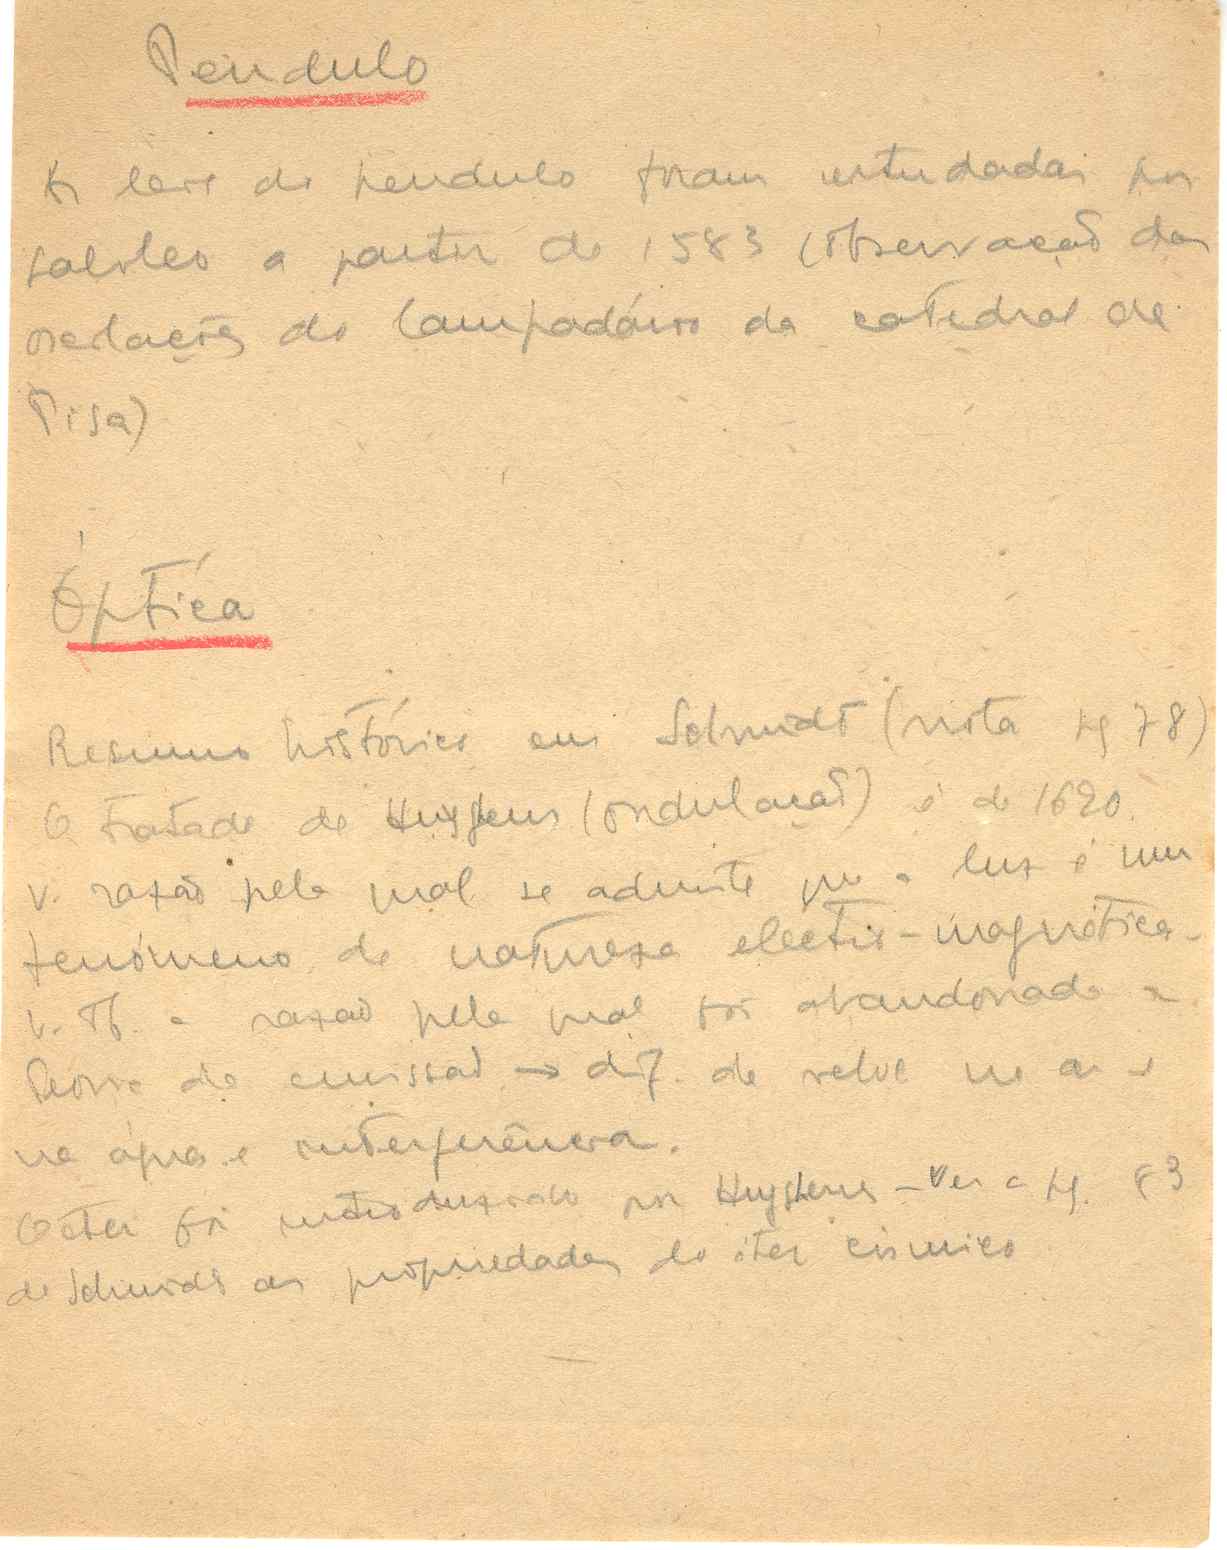 Pendulo
As leis do pendulo foram estudadas por
Galileo a partir de 1583 (observação das
oscilações do lampadário da catedral de
Pisa)
Óptica
Resumo histórico em Schmidt (nota pg 78)
O Tratado de Huyghens (ondulação) é de 1690.
v. razão pela qual se admite que a luz é um
fenómeno de natureza electro-magnética.
v. Tb. a razão pela qual foi abandonada a
Teoria da emissão → dif. de veloc no ar e
na água e interferência.
O éter foi introduzido por Huyghens - Ver a pg. 83
de Schmidt as propriedades do éter cósmico